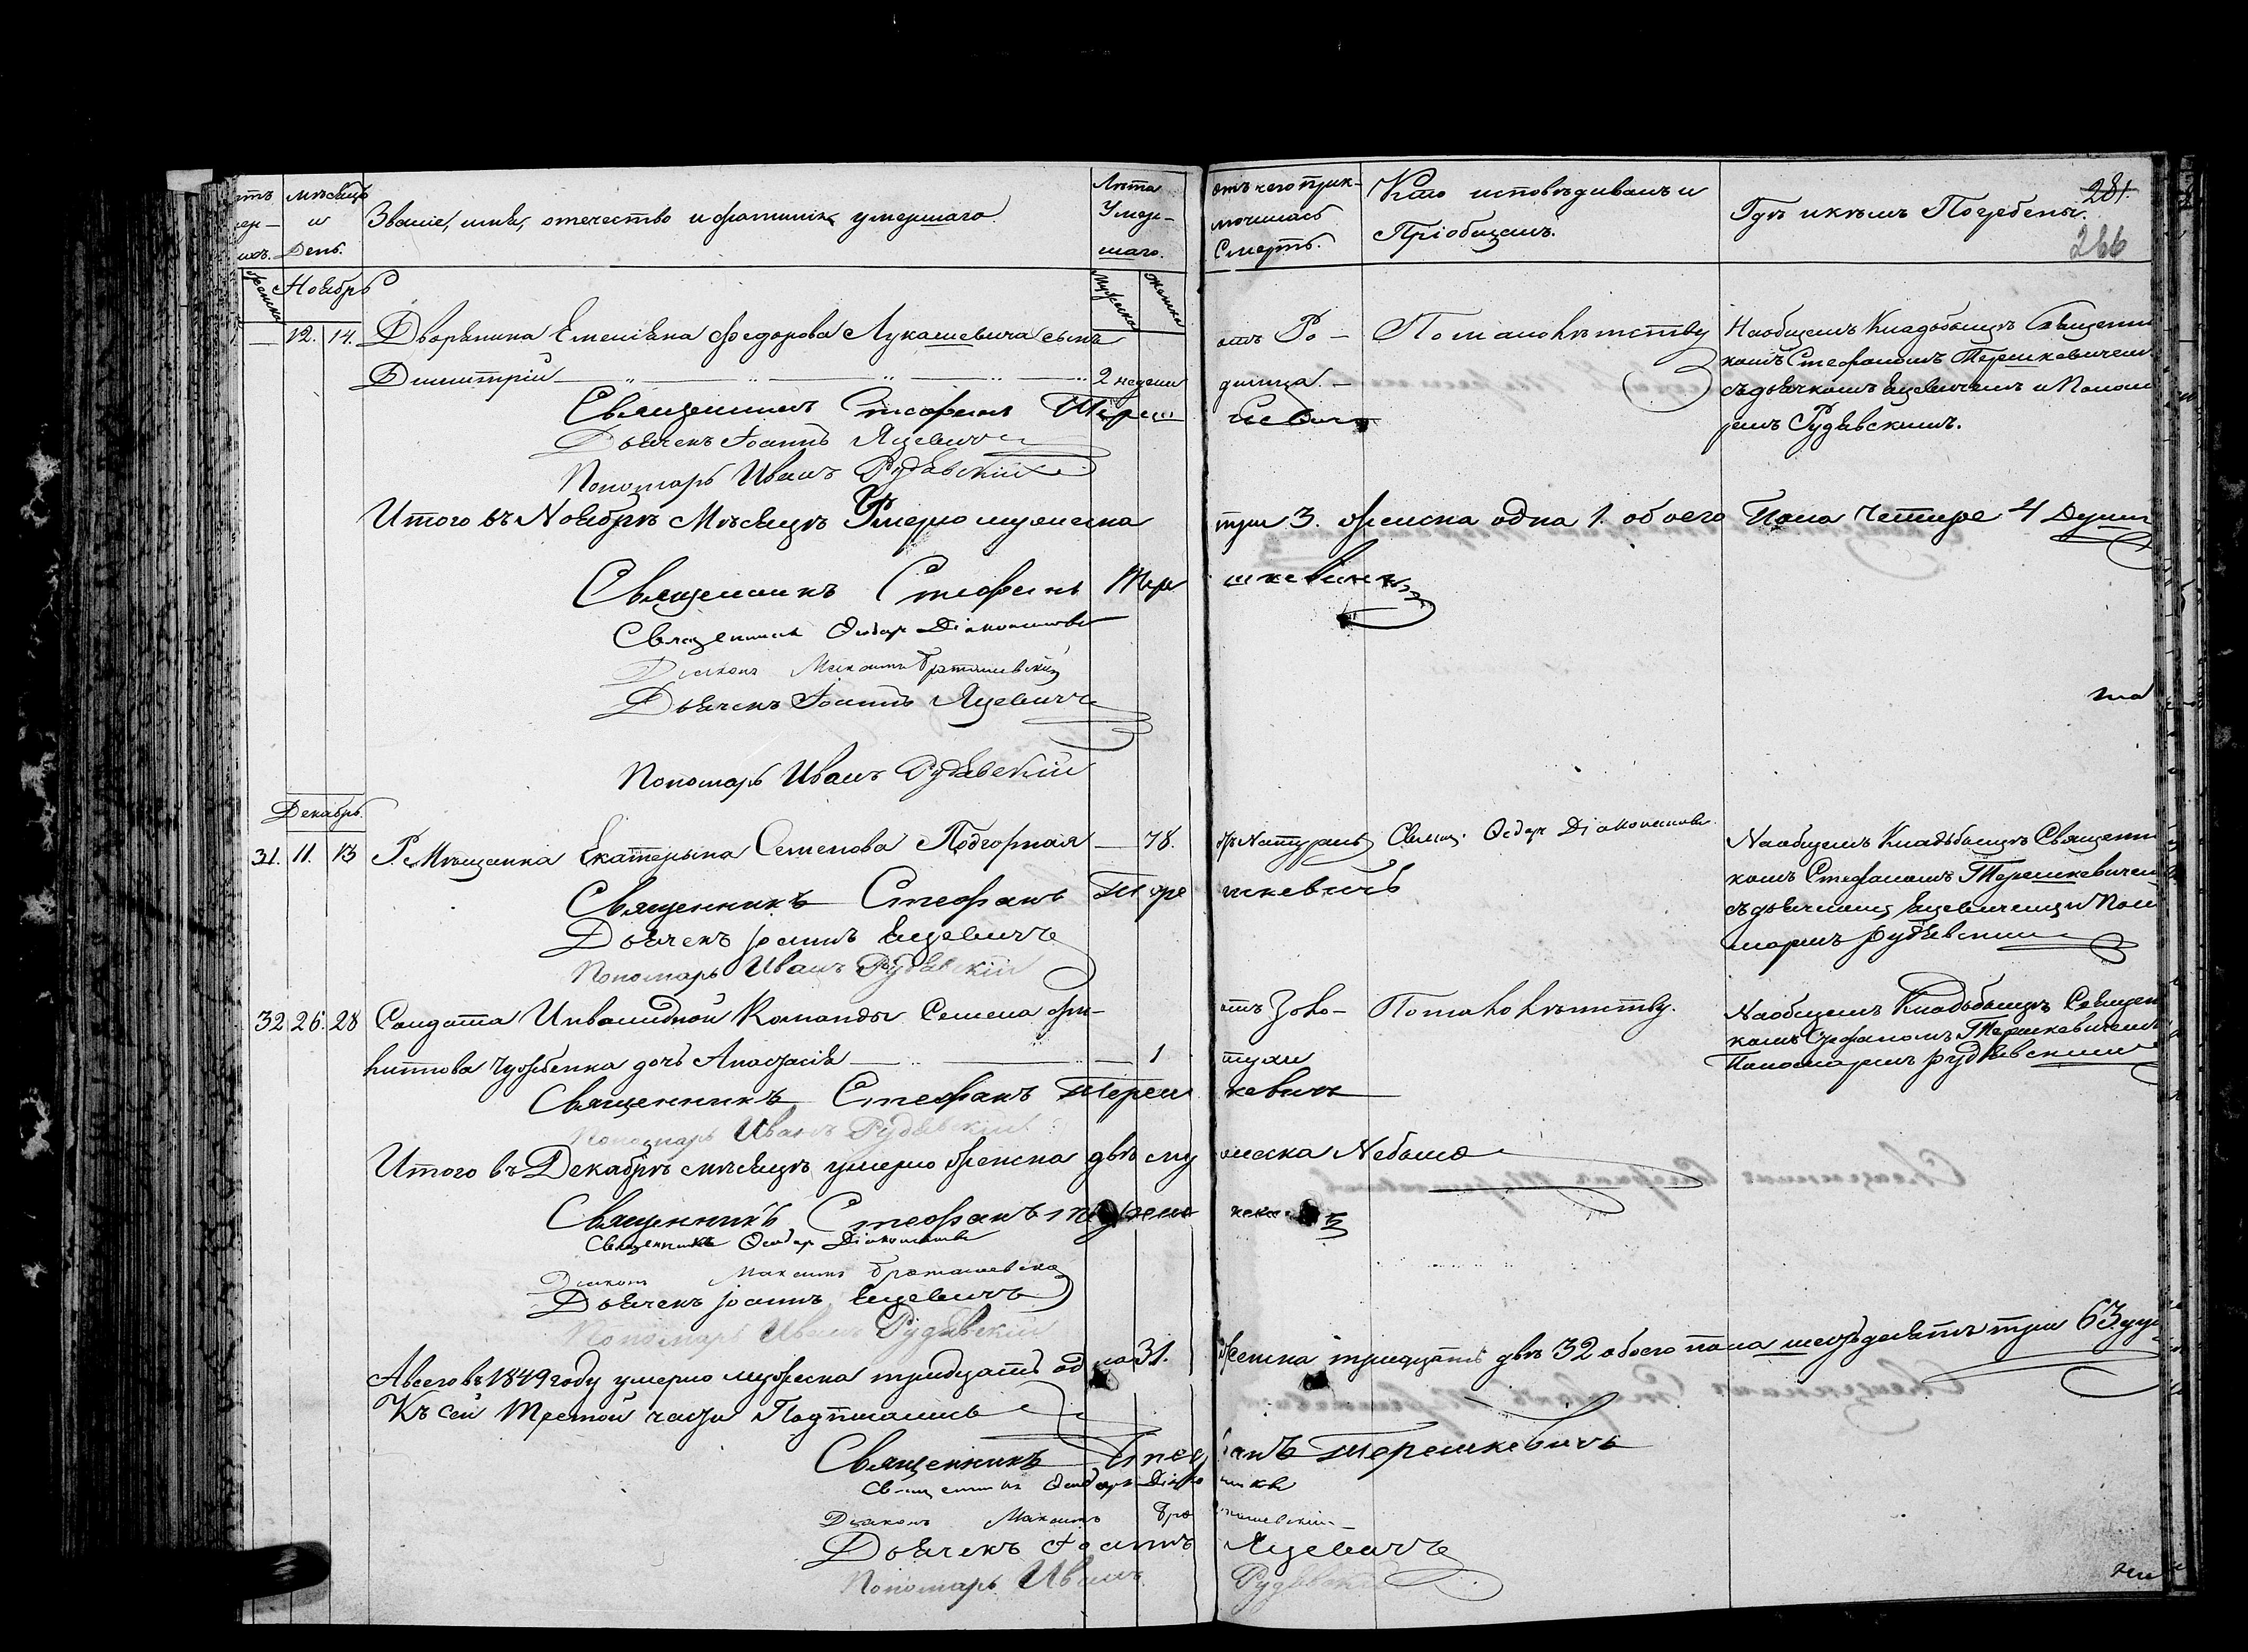 мѣсяцъ
и
День.
Званіе, имя, отечество и фамилія умершаго.
Лѣта
Умер-
шаго.
отъ чего прик-
лючилась
Смерть.
Кто исповѣдивалъ и
Пріобщалъ.
Гдѣ и кѣмъ Погребенъ.
281.
266
Женска
Ноябрь
Мужеска
Женска
— 12. 14. Дворянина Емеліяна Федорова Лукашевича сынъ
Димитрій 2 недели
отъ Ро-
димца.
По малолѣтству
На общемъ Кладбищѣ Священи
комъ Стефаномъ Терешкевичем
съ дьячкомъ Яцевичемъ и Поном
ремъ Рудявскимъ.
Священникъ Стефанъ Тереш кевичъ
Дьячекъ Іоаннъ Яцевичъ
Пономарь Иванъ Рудявскій
Итого въ Ноябрѣ Мѣсяцѣ Умерло мужеска три 3. женска одна 1. обоего Пола Четире 4 Души
Священникъ Стефанъ Тере шкевичъ
Священникъ Феодоръ
Діаконъ Максимъ
Дьячекъ Іоаннъ Яцевичъ
на
Пономарь Иванъ Рудявскій
Декабрь.
31. 11. 13 Р. Мѣщанка Екатерына Семенова Подгорная — 78.
Натурал
Свящ. Федоръ
На общемъ Кладбищѣ Священи
комъ Стефаномъ Терешкевичем
съ дьячкомъ Яцевичемъ и Поно
маремъ Рудявским
Священникъ Стефанъ Тере шкевичъ
Дьячекъ Іоаннъ Яцевичъ
Пономарь Иванъ Рудявскій
32 26. 28 Солдата Инвалидной Команды Семена
дочь Анастасія — 1
отъ Золо-
тухи
По малолѣтству.
На общемъ Кладбищѣ Священ
комъ Стефаномъ Терешкевичемъ
Пономаремъ Рудявским
Священникъ Стефанъ Тереш кевичъ
Пономарь Иванъ Рудявскій
Итого въ Декабрѣ мѣсяцѣ умерло женска двѣ му жеска Небыло
Священникъ Стефанъ Тереш
Священникъ Феодоръ
Діаконъ Максимъ
Дьячекъ Іоаннъ Яцевичъ
Пономарь Иванъ Рудявскій
А всего въ 1849 году умерло мужеска тридцать од на 31. женска тридцать двѣ 32 обоего пола шестьдесятъ три 63 ду
Къ сей Третой части Подписались
Священникъ Стеф анъ Терешкевичъ
Священникъ Феодоръ
Діаконъ Максимъ
Дьячекъ Іоаннъ Яцевичъ
Пономарь Иванъ Рудявскі